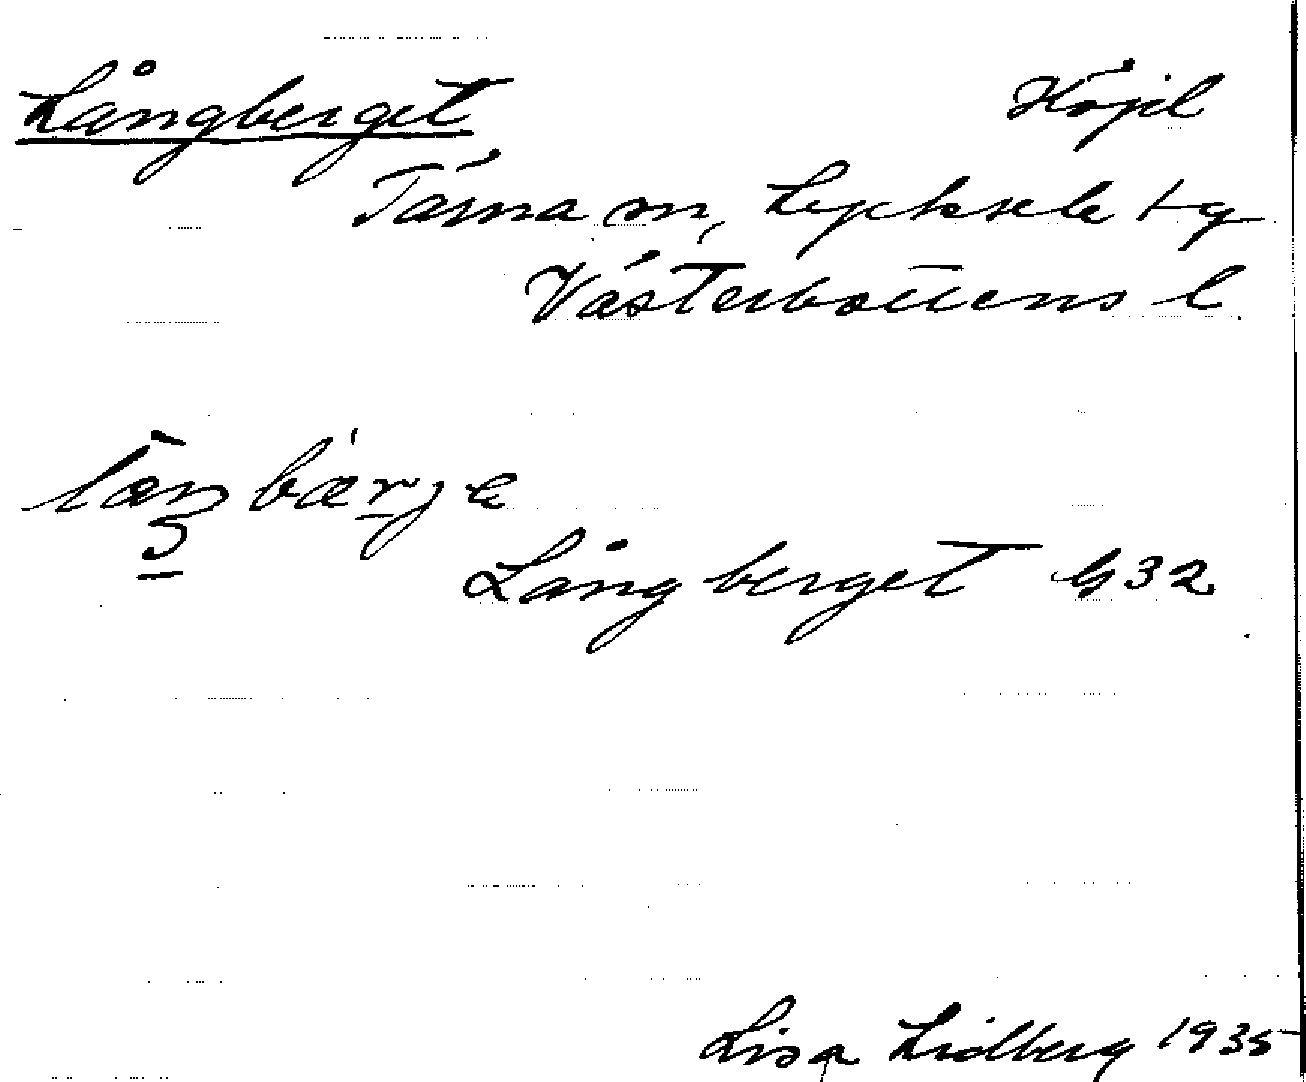 Långberget Höjd
Tärna sn, Lycksele tg
Västerbottens l.
bærje
Långberget G32
Lisa Lidberg 1935